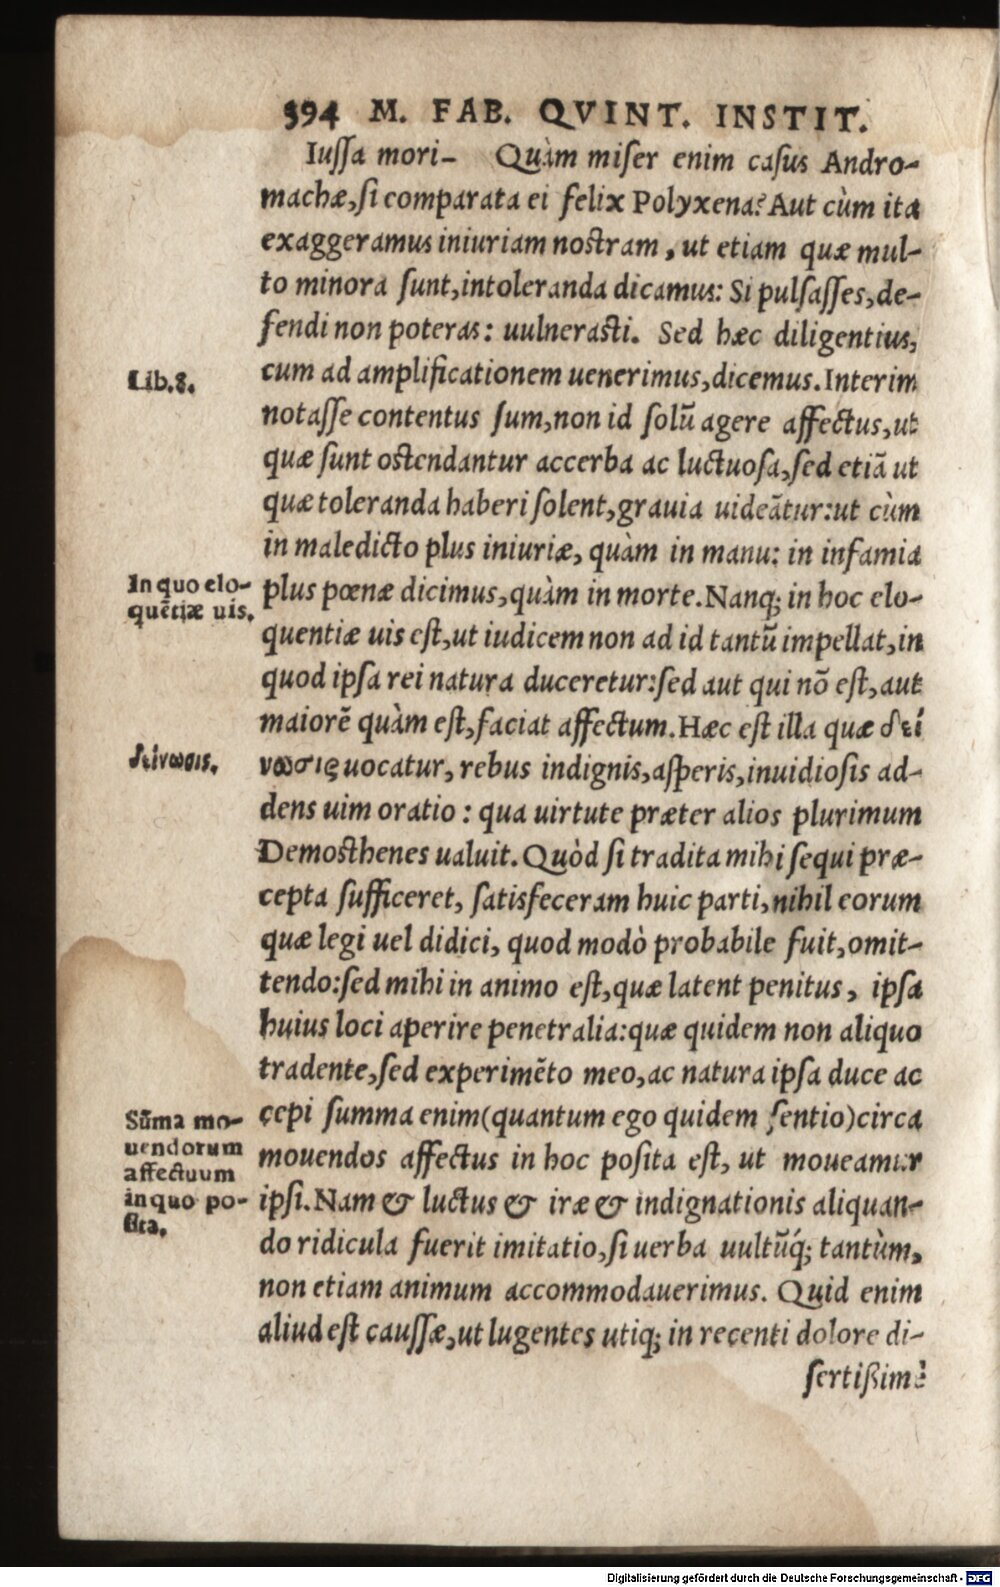 394 M. FAB. QVINT. INSTIT.
Iussa mori- Quàm miser enim casus Andro-
machæ, si comparata ei felix Polyxena? Aut cùm ita
exaggeramus iniuriam nostram, ut etiam quæ mul-
to minora sunt, intoleranda dicamus: Si pulsasses, de-
fendi non poteras: uulnerasti. Sed hæc diligentius,
Lib.8.
cum ad amplificationem uenerimus, dicemus. Interim
notasse contentus sum, non id solũ agere affectus, ut
quæ sunt ostendantur accerba ac luctuosa, sed etiã ut
quæ toleranda haberi solent, grauia uideãtur: ut cùm
in maledicto plus iniuriæ, quàm in manu: in infamia
In quo elo-
quẽtiæ uis.
plus pœnæ dicimus, quàm in morte. Nanq; in hoc elo-
quentiæ uis est, ut iudicem non ad id tantũ impellat, in
quod ipsa rei natura duceretur: sed aut qui nõ est, aut
maiorẽ quàm est, faciat affectum. Hæc est illa quæ δεί
δείνωσις.
νωσις uocatur, rebus indignis, asperis, inuidiosis ad-
dens uim oratio: qua uirtute præter alios plurimum
Demosthenes ualuit. Quòd si tradita mihi sequi præ-
cepta sufficeret, satisfeceram huic parti, nihil eorum
quæ legi uel didici, quod modò probabile fuit, omit-
tendo: sed mihi in animo est, quæ latent penitus, ipsa
huius loci aperire penetralia: quæ quidem non aliquo
tradente, sed experimẽto meo, ac natura ipsa duce ac
Sũma mo-
uendorum
affectuum
in quo po-
sita.
cepi summa enim (quantum ego quidem sentio) circa
mouendos affectus in hoc posita est, ut moueamur
ipsi. Nam & luctus & iræ & indignationis aliquan-
do ridicula fuerit imitatio, si uerba uultũq́; tantùm,
non etiam animum accommodauerimus. Quid enim
aliud est caussæ, ut lugentes utiq; in recenti dolore di-
sertißimè
Digitalisierung gefördert durch die Deutsche Forschungsgemeinschaft - DFG